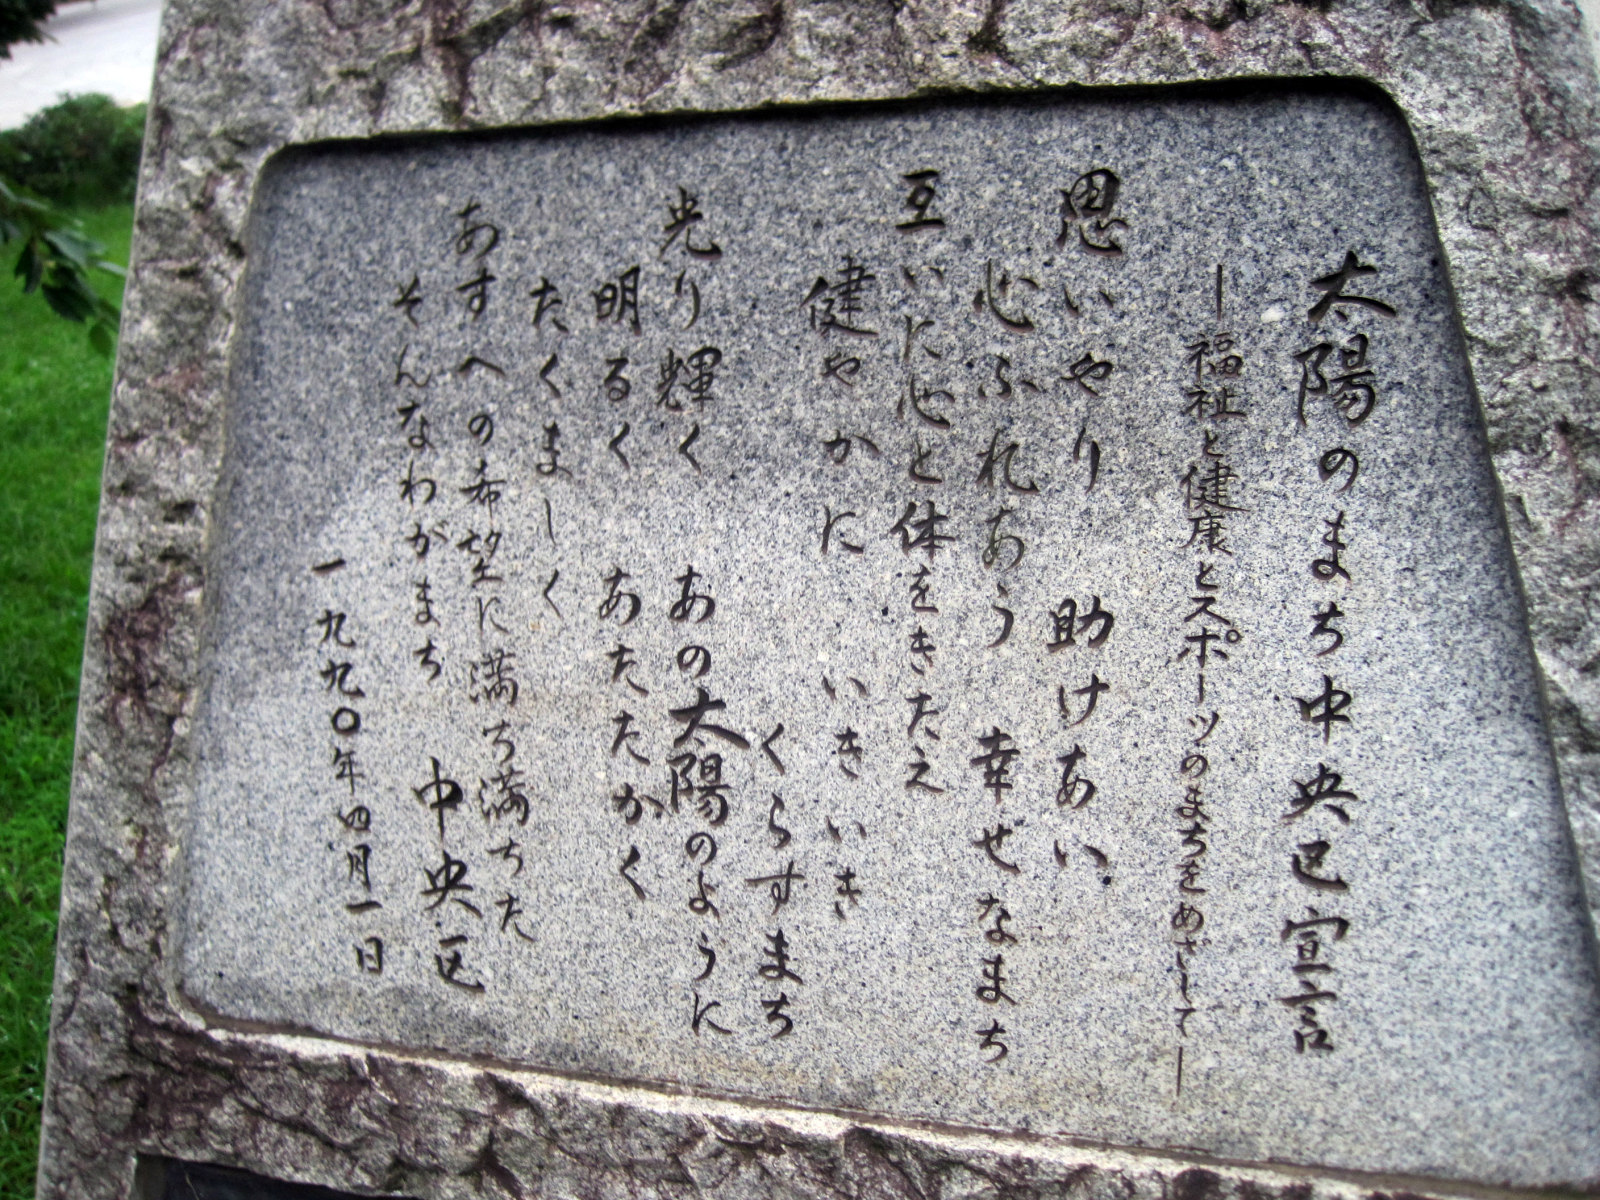 太陽のまち中央区宣言
―福祉と健康とスポーツのまちをめざして―
思いやり 助けあい
心ふれあう 幸せなまち
互いに心と体をきたえ
健やかに いきいき
くらすまち
光り輝く あの太陽のように
明るく あたたかく
たくましく
あすへの希望に満ち満ちた
そんなわがまち 中央区
一九九〇年四月一日